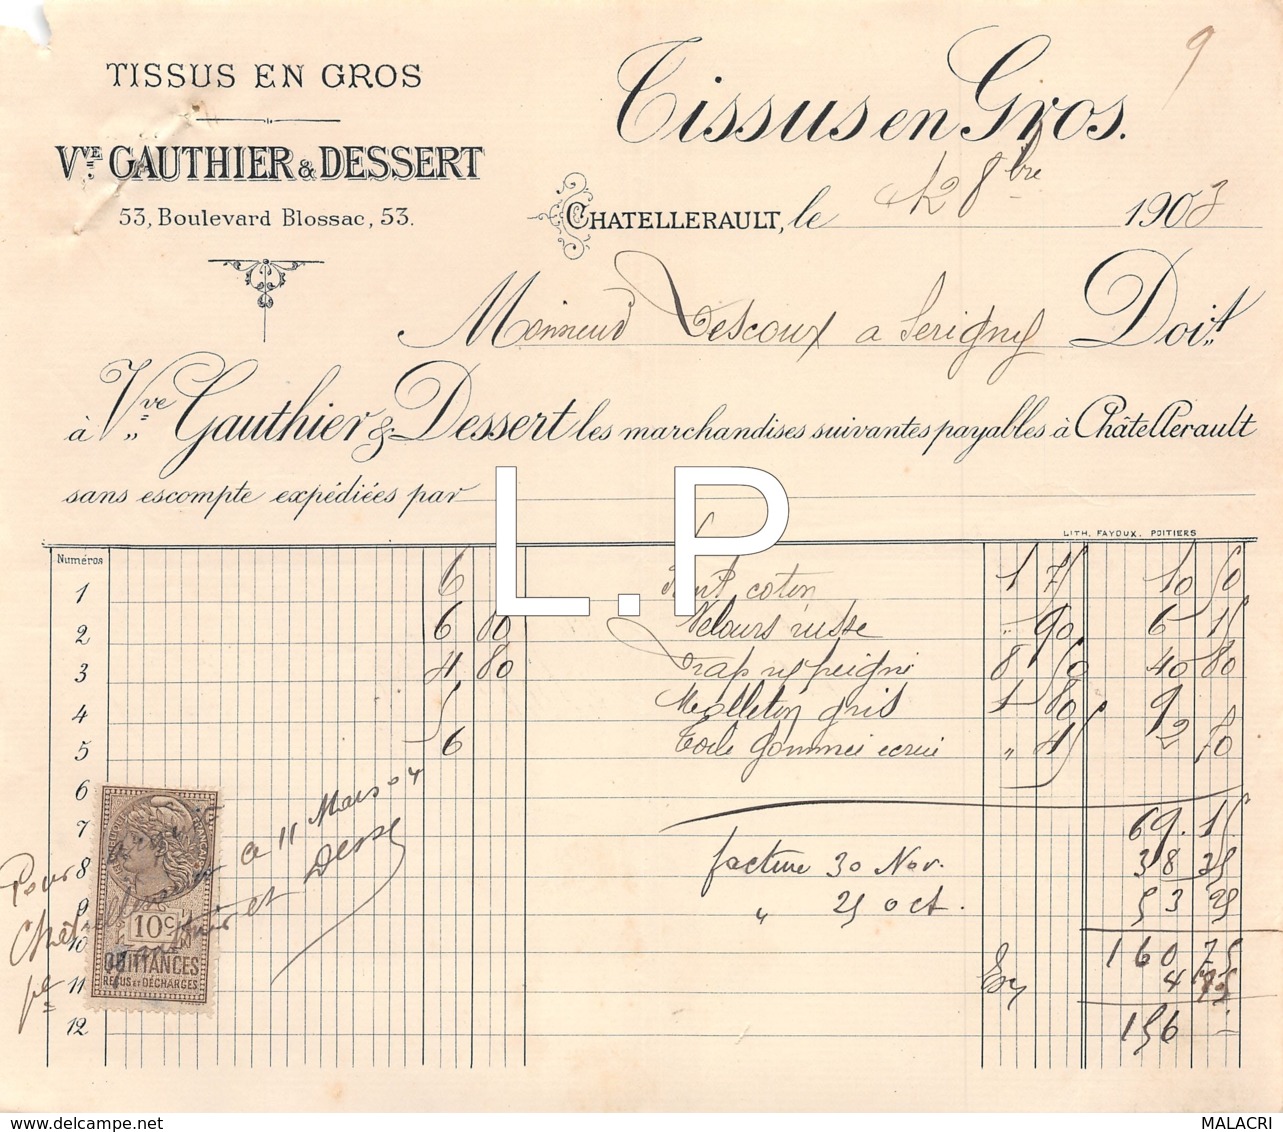 TISSUS EN GROS
Vve GAUTHIER & DESSERT
53, Boulevard Blossac, 53.
Tissus en Gros.
9
CHATELLERAULT, le 8bre 1903
Monsieur Descoux a Serigny Doit
à Vve Gauthier & Dessert les marchandises suivantes payables à Châtellerault
sans escompte expédiées par
L.P
LITH. FAYOUX. POITIERS
Numéros
1 6 coton 1 75 10 50
2 6 80 Velours russe " 90 6 15
3 4 80 Drap peigné 8 50 40 80
4 5 Molleton gris 1 80 9
5 6 Toile Gommée écrue " 45 2 70
6
7 69.15
8 facture 30 Nov. 38 35
9 " 25 oct. 53 25
10 160 75
11 4 75
12 156 "
Pour
Châtellerault ce 11 Mars 04
QUITTANCES
REÇUS ET DÉCHARGES
10c
REPUBLIQUE FRANÇAISE
MALACRI
www.delcampe.net